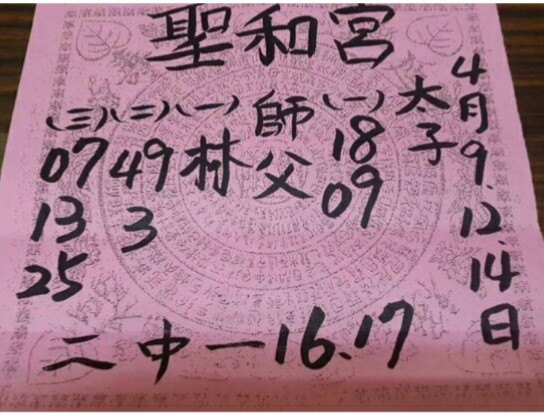 聖和宮
4月9.12.14日
太子
(一)
18
09
師父
(一)
林
(二)
49
3
(三)
07
13
25
二中一16.17